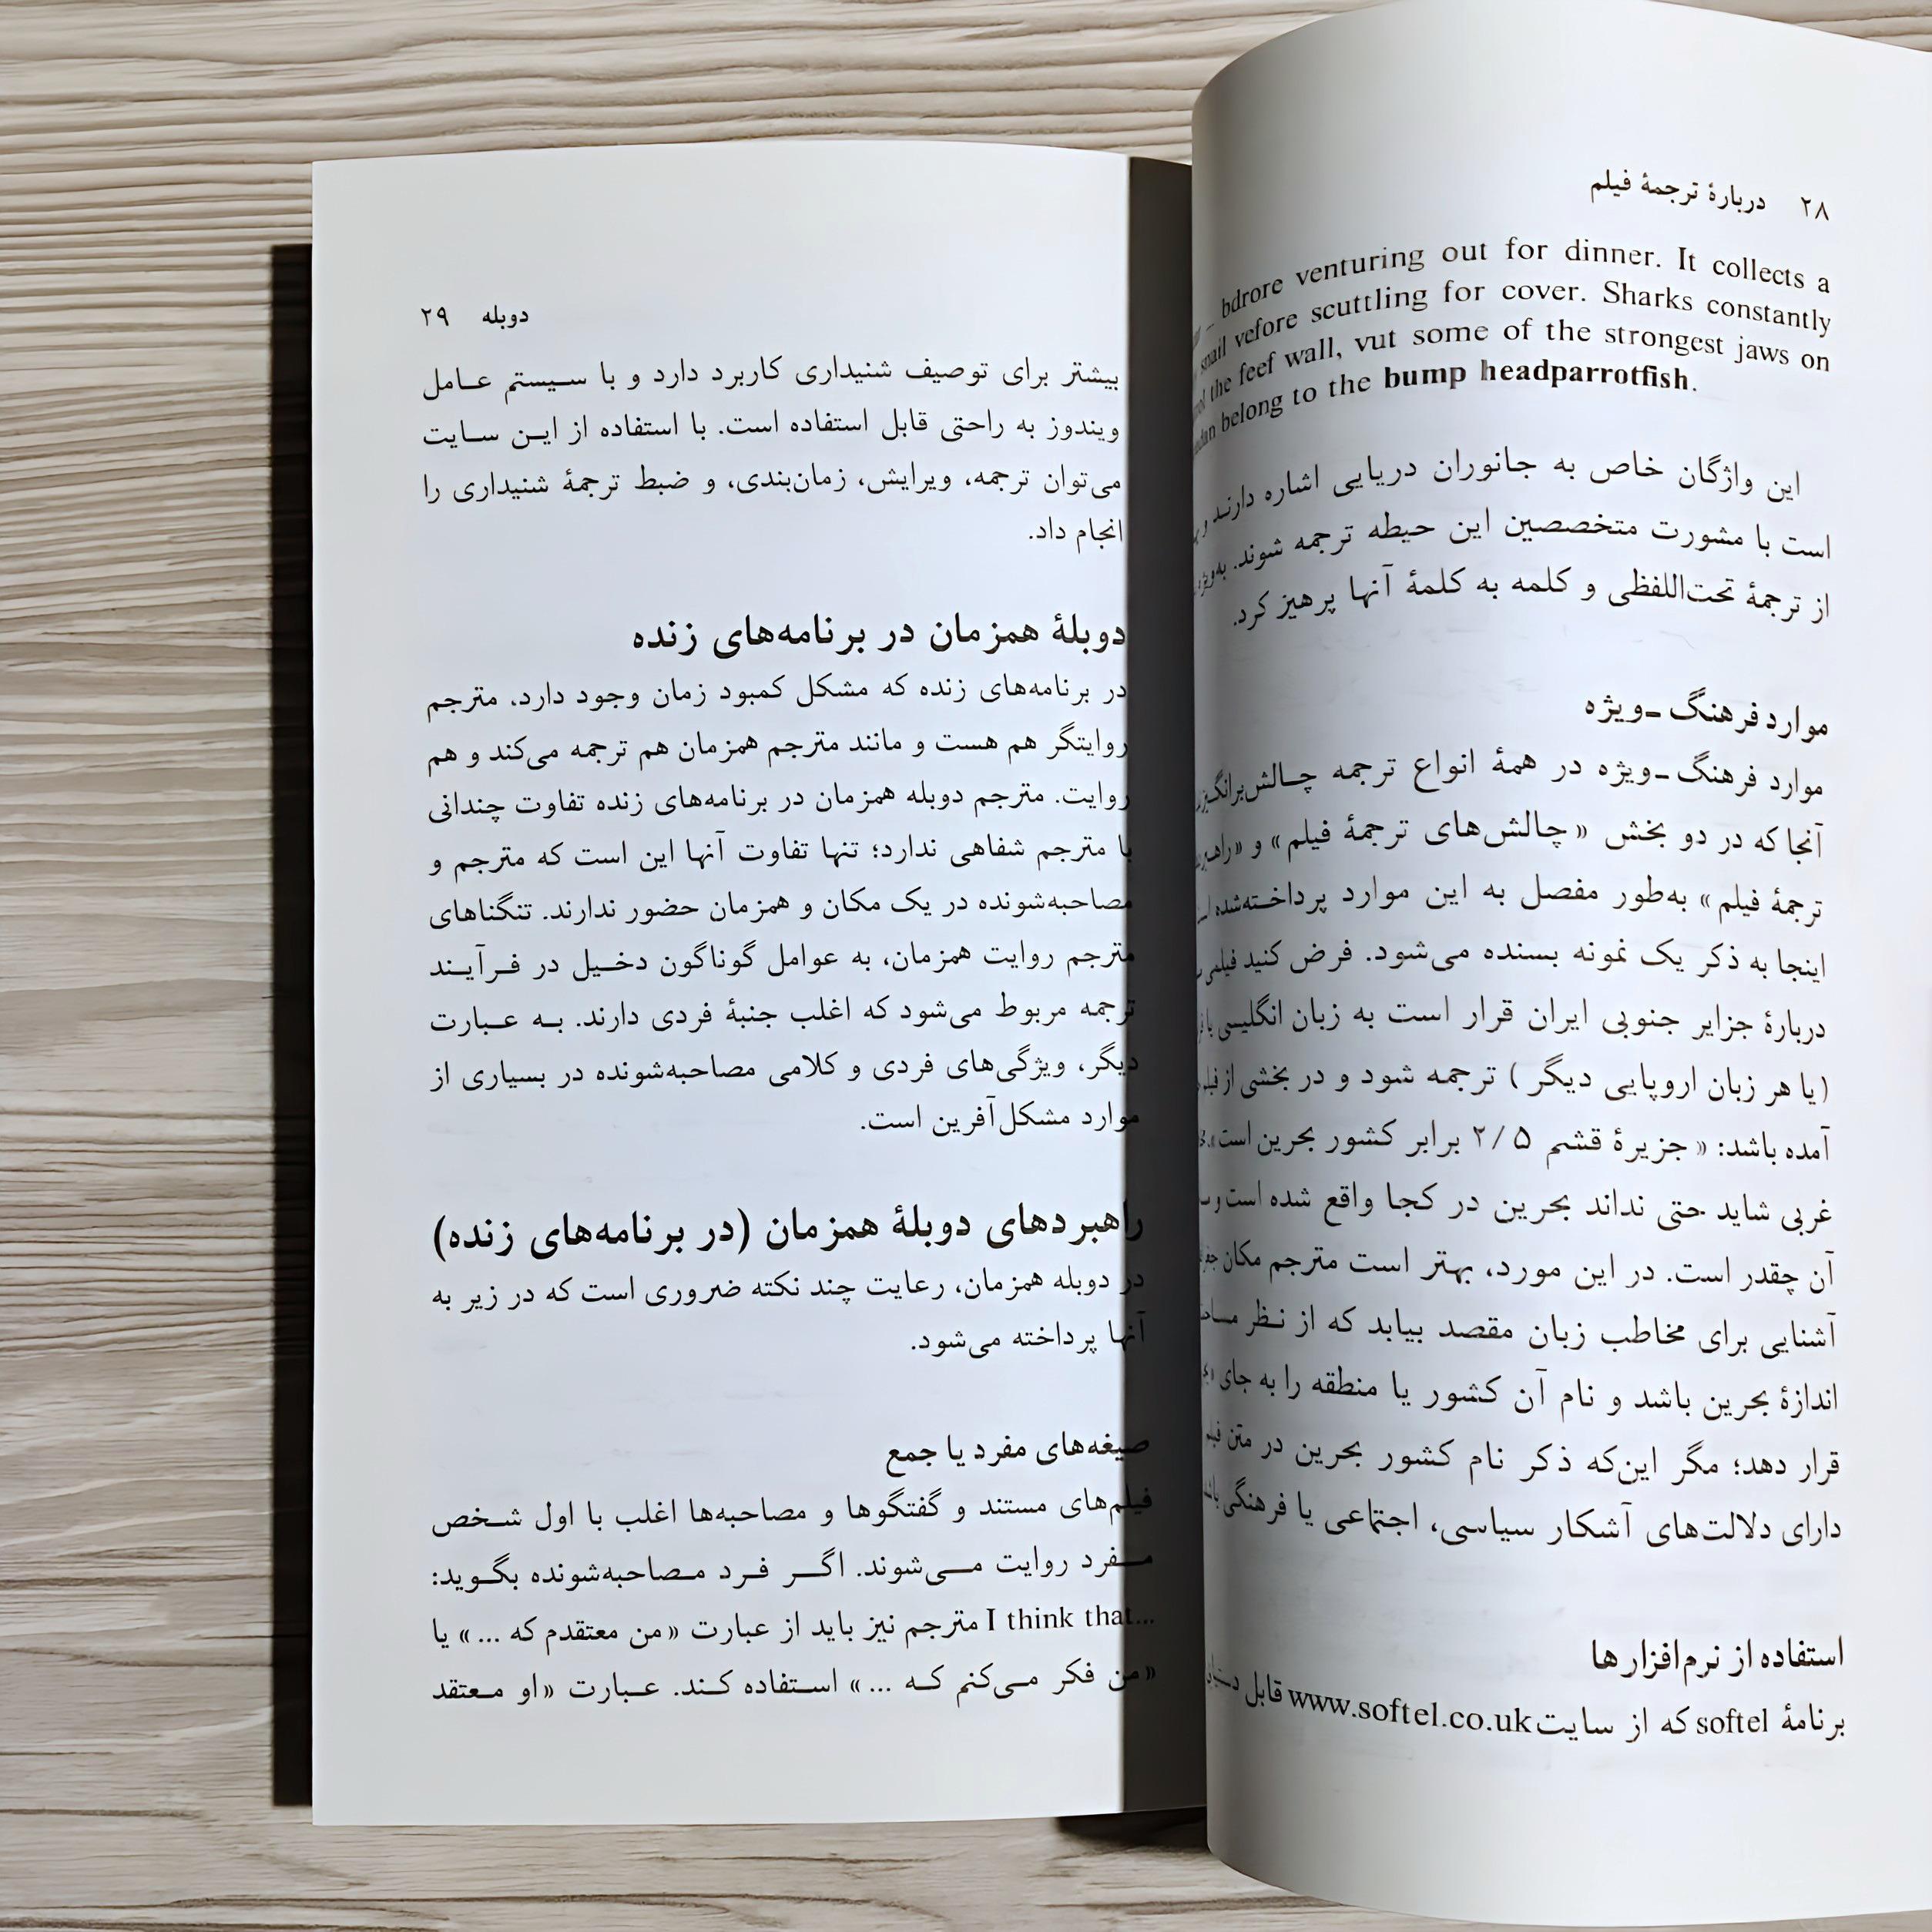 ۲۸ دربارهٔ ترجمهٔ فیلم
bdrore venturing out for dinner. It collects a
snail vefore scuttling for cover. Sharks constantly
the feef wall, vut some of the strongest jaws on
belong to the bump headparrotfish.
این واژگان خاص به جانوران دریایی اشاره دارند و
است با مشورت متخصصین این حیطه ترجمه شوند.
از ترجمهٔ تحت‌اللفظی و کلمه به کلمهٔ آنها پرهیز کرد.
موارد فرهنگ-ویژه
موارد فرهنگ-ویژه در همهٔ انواع ترجمه
آنجا که در دو بخش «چالش‌های ترجمهٔ فیلم» و
ترجمهٔ فیلم» به‌طور مفصل به این موارد پرداخته‌شده
اینجا به ذکر یک نمونه بسنده می‌شود. فرض کنید
دربارهٔ جزایر جنوبی ایران قرار است به زبان انگلیسی
(یا هر زبان اروپایی دیگر) ترجمه شود و در بخشی از
آمده باشد: «جزیرهٔ قشم ۲/۵ برابر کشور بحرین است».
غربی شاید حتی نداند بحرین در کجا واقع شده است و
آن چقدر است. در این مورد، بهتر است مترجم مکان
آشنایی برای مخاطب زبان مقصد بیابد که از نظر
اندازهٔ بحرین باشد و نام آن کشور یا منطقه را به جای
قرار دهد؛ مگر این‌که ذکر نام کشور بحرین در متن
دارای دلالت‌های آشکار سیاسی، اجتماعی یا فرهنگی
استفاده از نرم‌افزارها
برنامهٔ softel که از سایت www.softel.co.uk قابل
دوبله ۲۹
بیشتر برای توصیف شنیداری کاربرد دارد و با سیستم عامل
ویندوز به راحتی قابل استفاده است. با استفاده از این سایت
می‌توان ترجمه، ویرایش، زمان‌بندی، و ضبط ترجمهٔ شنیداری را
انجام داد.
دوبلهٔ همزمان در برنامه‌های زنده
در برنامه‌های زنده که مشکل کمبود زمان وجود دارد، مترجم
روایتگر هم هست و مانند مترجم همزمان هم ترجمه می‌کند و هم
روایت. مترجم دوبله همزمان در برنامه‌های زنده تفاوت چندانی
با مترجم شفاهی ندارد؛ تنها تفاوت آنها این است که مترجم و
مصاحبه‌شونده در یک مکان و همزمان حضور ندارند. تنگناهای
مترجم روایت همزمان، به عوامل گوناگون دخیل در فرآیند
ترجمه مربوط می‌شود که اغلب جنبهٔ فردی دارند. به عبارت
دیگر، ویژگی‌های فردی و کلامی مصاحبه‌شونده در بسیاری از
موارد مشکل‌آفرین است.
راهبردهای دوبلهٔ همزمان (در برنامه‌های زنده)
در دوبله همزمان، رعایت چند نکته ضروری است که در زیر به
آنها پرداخته می‌شود.
صیغه‌های مفرد یا جمع
فیلم‌های مستند و گفتگوها و مصاحبه‌ها اغلب با اول شخص
مفرد روایت می‌شوند. اگر فرد مصاحبه‌شونده بگوید:
I think that... مترجم نیز باید از عبارت «من معتقدم که ...» یا
«من فکر می‌کنم که ...» استفاده کند. عبارت «او معتقد